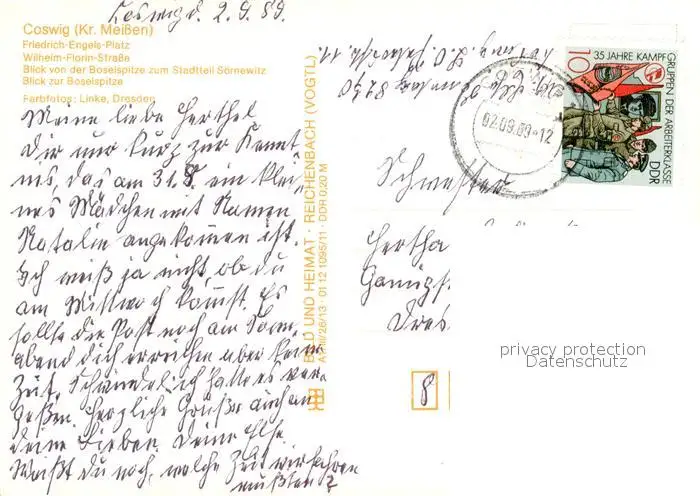 Coswig d. 2.9.89
Coswig (Kr. Meißen)
Friedrich-Engels-Platz
Wilhelm-Florin-Straße
Blick von der Boselspitze zum Stadtteil Sörnewitz
Blick zur Boselspitze
Farbfotos: Linke, Dresden
Meine liebe Herthel
Dir nur kurz zur Kennt-
nis, das am 31.8. ein klei-
nes Mädchen mit Namen
Natalin angekommen ist.
Ich weiß ja nicht ob du
am Mittwoch kommst. Es
sollte die Post noch am Sonn-
abend dich erreichen aber keine
Zeit. Schwindelich hatte es ver-
geßen. Herzliche Grüße auch an
deine Lieben. Deine Else.
Weißt du noch, welche Zeit wir fahren
mußten?
BILD UND HEIMAT · REICHENBACH (VOGTL)
A 1/B/26/13 · 01 12 1095/11 · DDR 0,20 M
8270
02.09.89-12
35 JAHRE KAMPFGRUPPEN DER ARBEITERKLASSE
10
DDR
Schwester
Hertha
Dres
8
privacy protection
Datenschutz